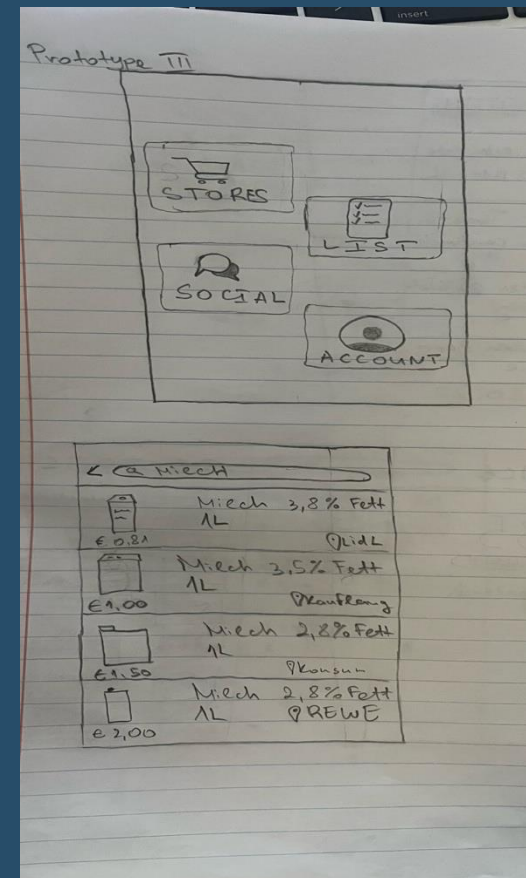 insert
Prototype III
STORES
LIST
SOCIAL
ACCOUNT
Miech
Miech 3,8% Fett
1L
€ 0.81 Lidl
Miech 3,5% Fett
1L
€1,00 Kaufland
Miech 2,8% Fett
1L
€1,50 Konsum
Miech 2,8% Fett
1L REWE
€ 2,00